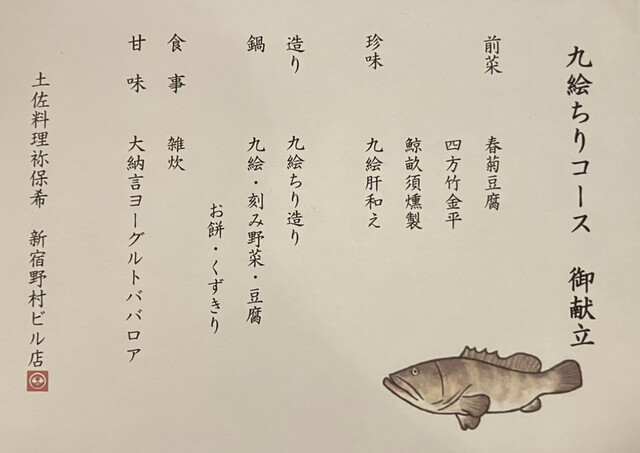 九絵ちりコース 御献立
前菜 春菊豆腐
四方竹金平
鯨畝須燻製
珍味 九絵肝和え
造り 九絵ちり造り
鍋 九絵・刻み野菜・豆腐
お餅・くずきり
食事 雑炊
甘味 大納言ヨーグルトババロア
土佐料理祢保希 新宿野村ビル店